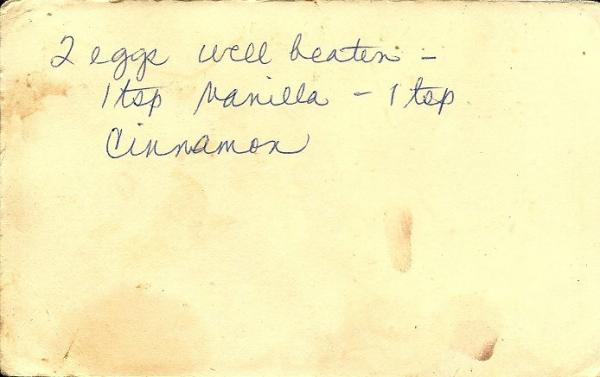 2 eggs well beaten -
1 tsp Vanilla - 1 tsp
Cinnamon